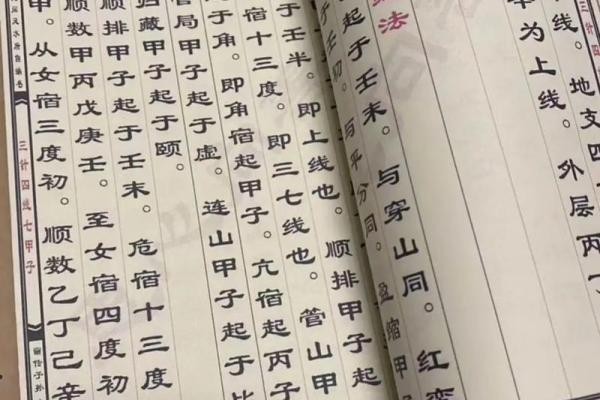 三针四线
上线。地支四
华为上线。外层丙丁
法
起于壬末。与穿山同。红
于壬初。与平分同。盈缩甲
于壬半。即上线也。顺排甲子起
宿十三度。即三七线也。管山甲
于角。即角宿起甲子。亢宿起丙子
管局甲子起于虚。连山甲子起于比
归藏甲子起于颐。
顺排甲子起于壬末。危宿十三度
顺数甲丙戊庚壬。至女宿四度初
甲。从女宿三度初。顺数乙丁己辛
三针四线七甲子